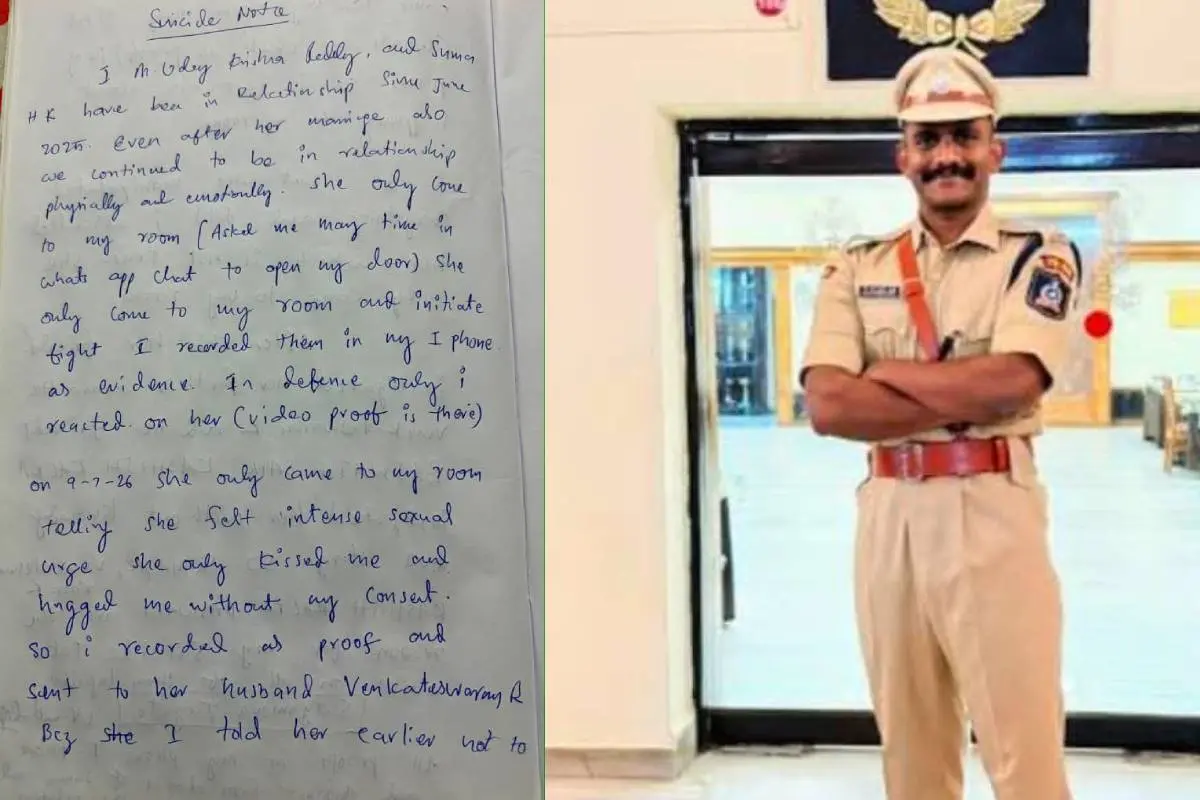 Suicide Note
I M. Udey Krishna Reddy, and Suma
H K have been in Relationship Since June
2025. Even after her marriage also
we continued to be in relationship
physially and emotionally. She only come
to my room [Asked me may time in
whats app chat to open my door) She
only come to my room and initiate
fight I recorded them in my I phone
as evidence. In defence only i
reacted on her (video proof is there)
on 9-7-26 she only came to my room
telling she felt intense sexual
urge she only kissed me and
hugged me without my consent.
so i recorded as proof and
sent to her husband Venkateswaran R
Bcz she I told her earlier not to